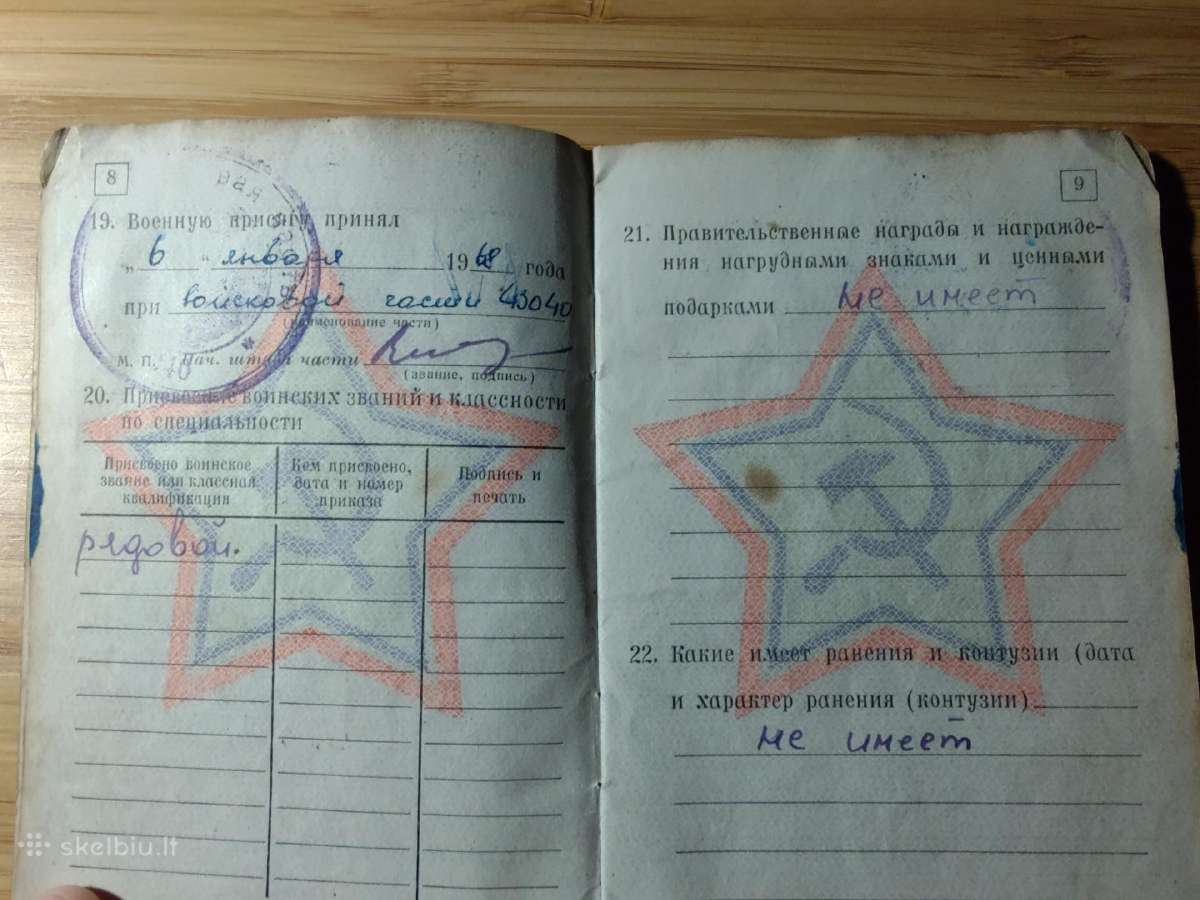 8
19. Военную присягу принял
„6" января 1968 года
при войсковой части 43040
(наименование части)
М. П. Нач. штаба части
(звание, подпись)
20. Присвоение воинских званий и классности
по специальности
Присвоено воинское
звание или классная
квалификация
Кем присвоено,
дата и номер
приказа
Подпись и
печать
рядовой.
9
21. Правительственные награды и награжде-
ния нагрудными знаками и ценными
подарками не имеет
22. Какие имеет ранения и контузии (дата
и характер ранения (контузии)
не имеет
skelbiu.lt